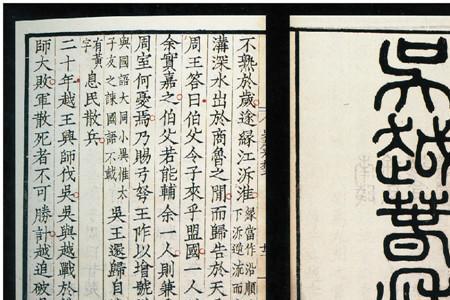 吳越春
不熟於歲遂緣江泝淮
緣當作沿順
下泝逆流而
溝深水出於商魯之間而歸告於天
周王答曰伯父令子來乎盟國一人
余實嘉之伯父若能輔余一人則兼
周室何憂焉乃賜弓弩王阼以增號
與國語大同小異惟太
子友之諫國語不載
吳王還歸自
有黃
字
息民散兵
二十年越王興師伐吳吳與越戰於
師大敗軍散死者不可勝計越追破